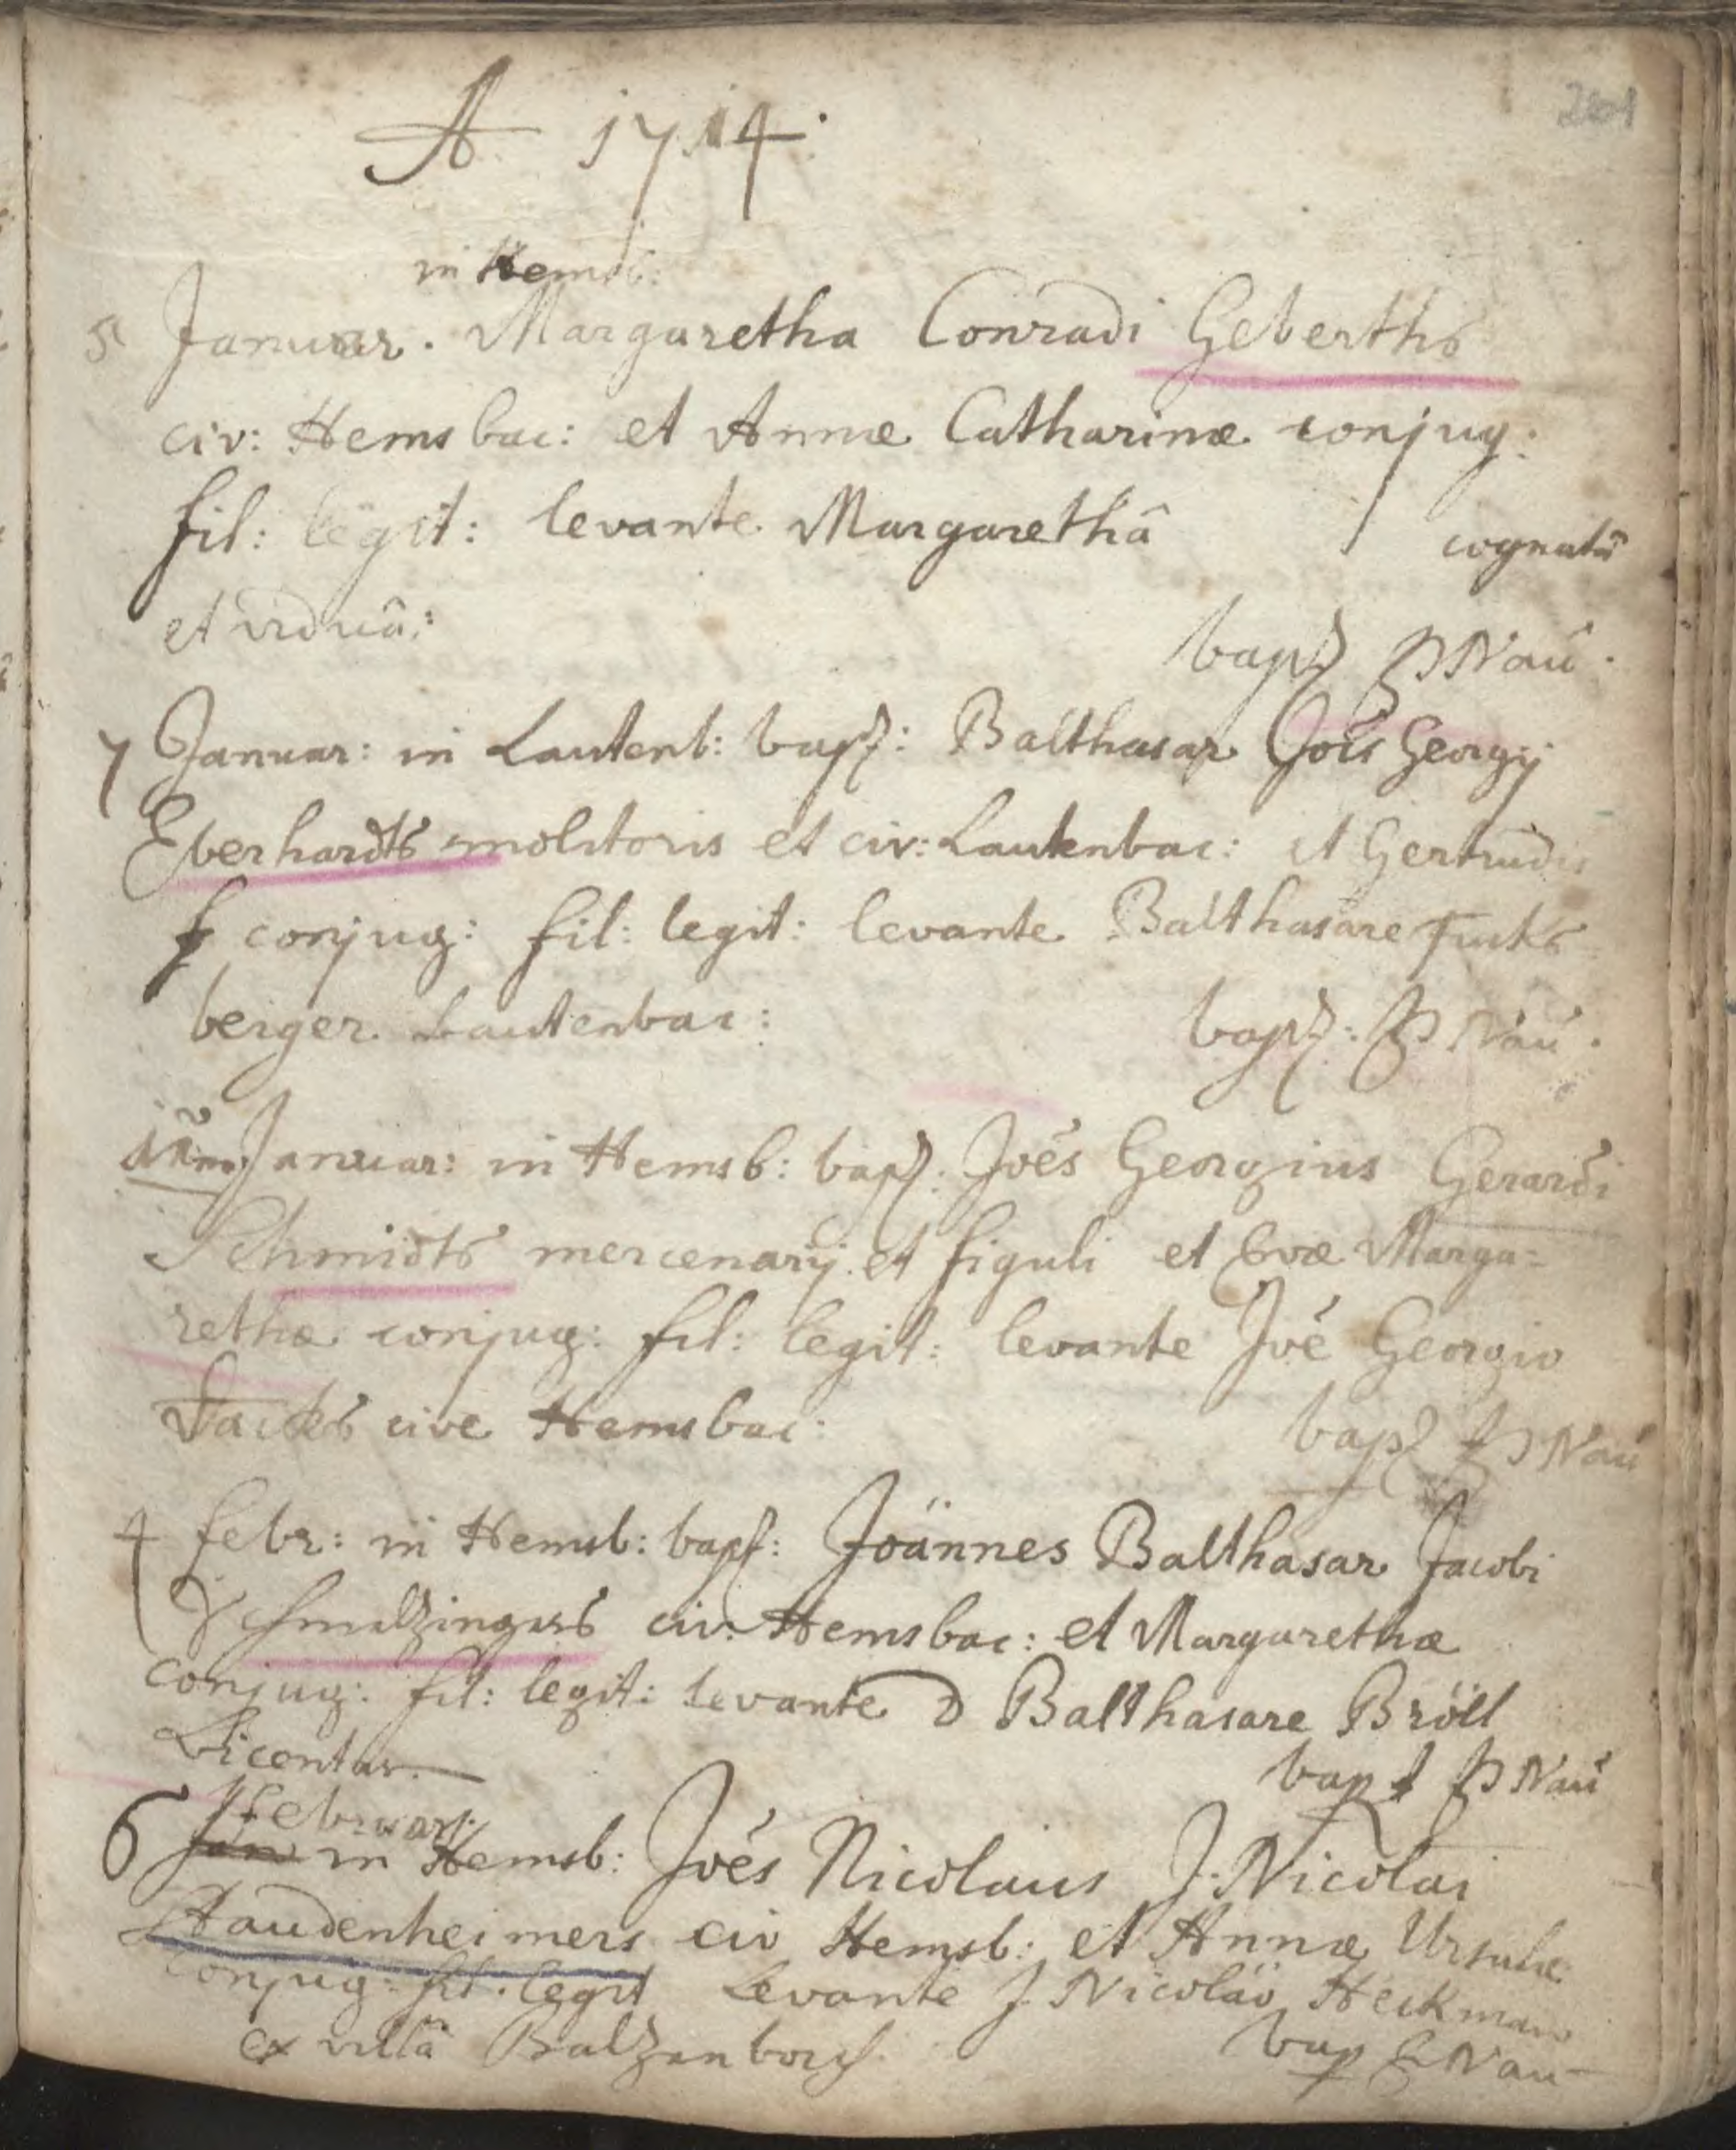 201
A 1714.
in Hemsb:
5 Januar. Margaretha Conradi Geberths
civ: Hemsbac: et Annæ Catharinæ conjug:
fil: legit: levante Margarethâ cognatâ
et viduâ:
bapt P Nau.
7 Januar: in Lautenb: bapt: Balthasar Jois Georgij
Eberhardts molitoris et civ: Lautenbac: et Gertrudis
conjug: fil: legit: levante Balthasare
berger Lautenbac: bapt: P Nau.
Januar: in Hemsb: bapt: Joēs Georgius Gerardi
Schmidts mercenarij et figuli et Evæ Marga=
rethæ conjug: fil: legit: levante Joē Georgio
cive Hemsbac: bapt P Nau
4 febr: in Hemsb: bapt: Joännes Balthasar Jacobi
Schmelzingers civ: Hemsbac: et Margarethæ
conjug: fil: legit: levante D Balthasare Bröll
Licentiat. bapt P Nau
Februarj.
6 Jan in Hemsb: Joēs Nicolaus J. Nicolai
Staudenheimers civ Hemsb: et Annæ Ursulæ
conjug: fil. legit levante J. Nicoläo Heckman
ex villâ Balzenbach bap P Nau